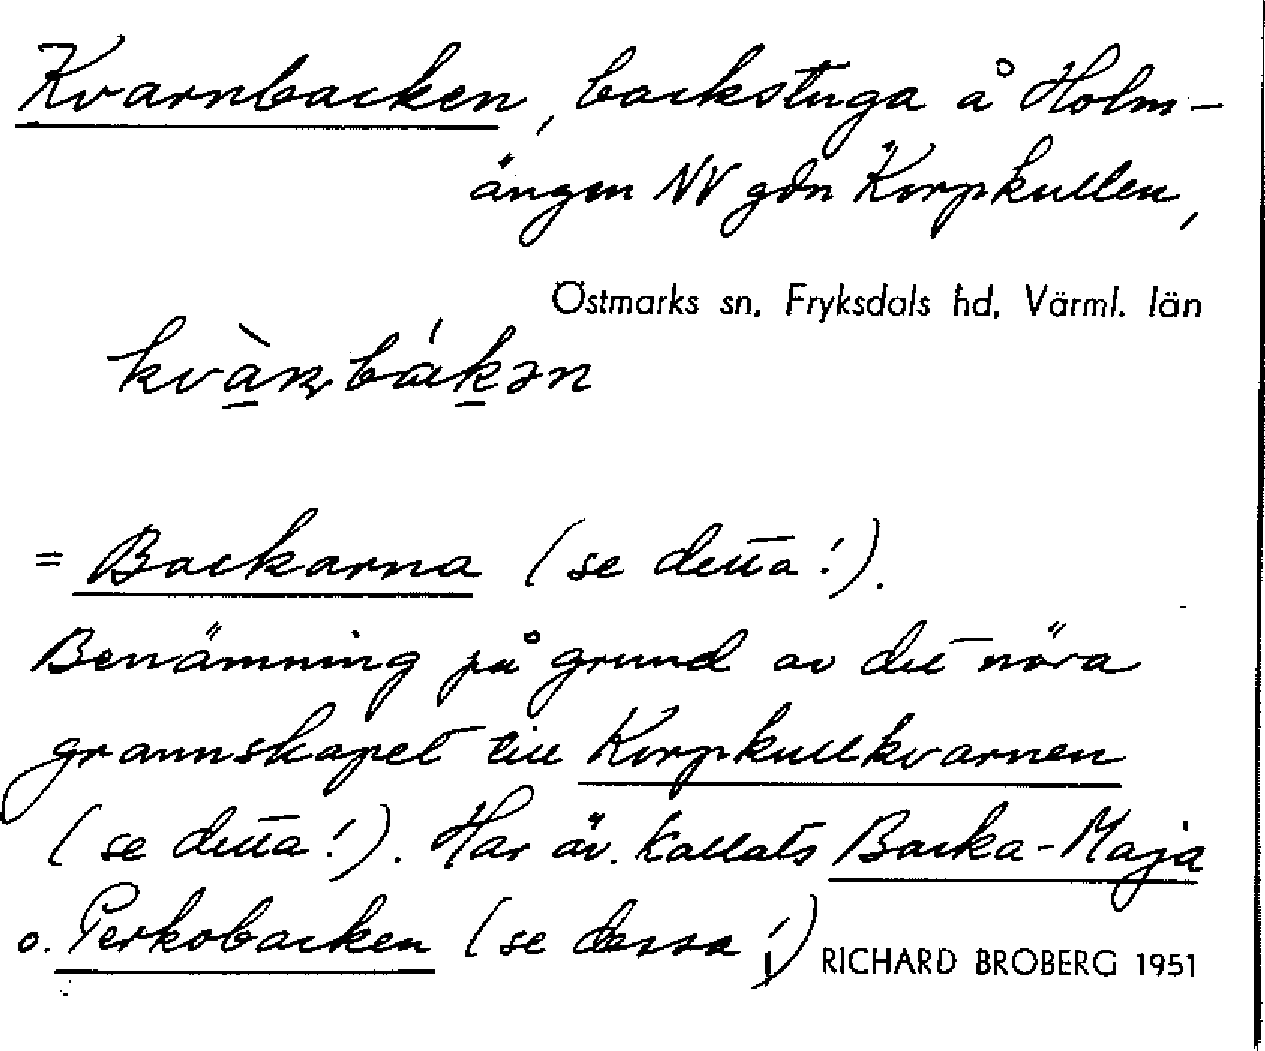 Kvarnbacken, backstuga å Holm-
ängen NV gdn Korpkullen,
Östmarks sn, Fryksdals hd, Värml. län
= Backarna (se detta!).
Benämning på grund av det nära
grannskapet till Korpkullkvarnen
(se detta!). Har äv. kallats Backa-Maja
o. Perkobacken (se dessa!)
RICHARD BROBERG 1951